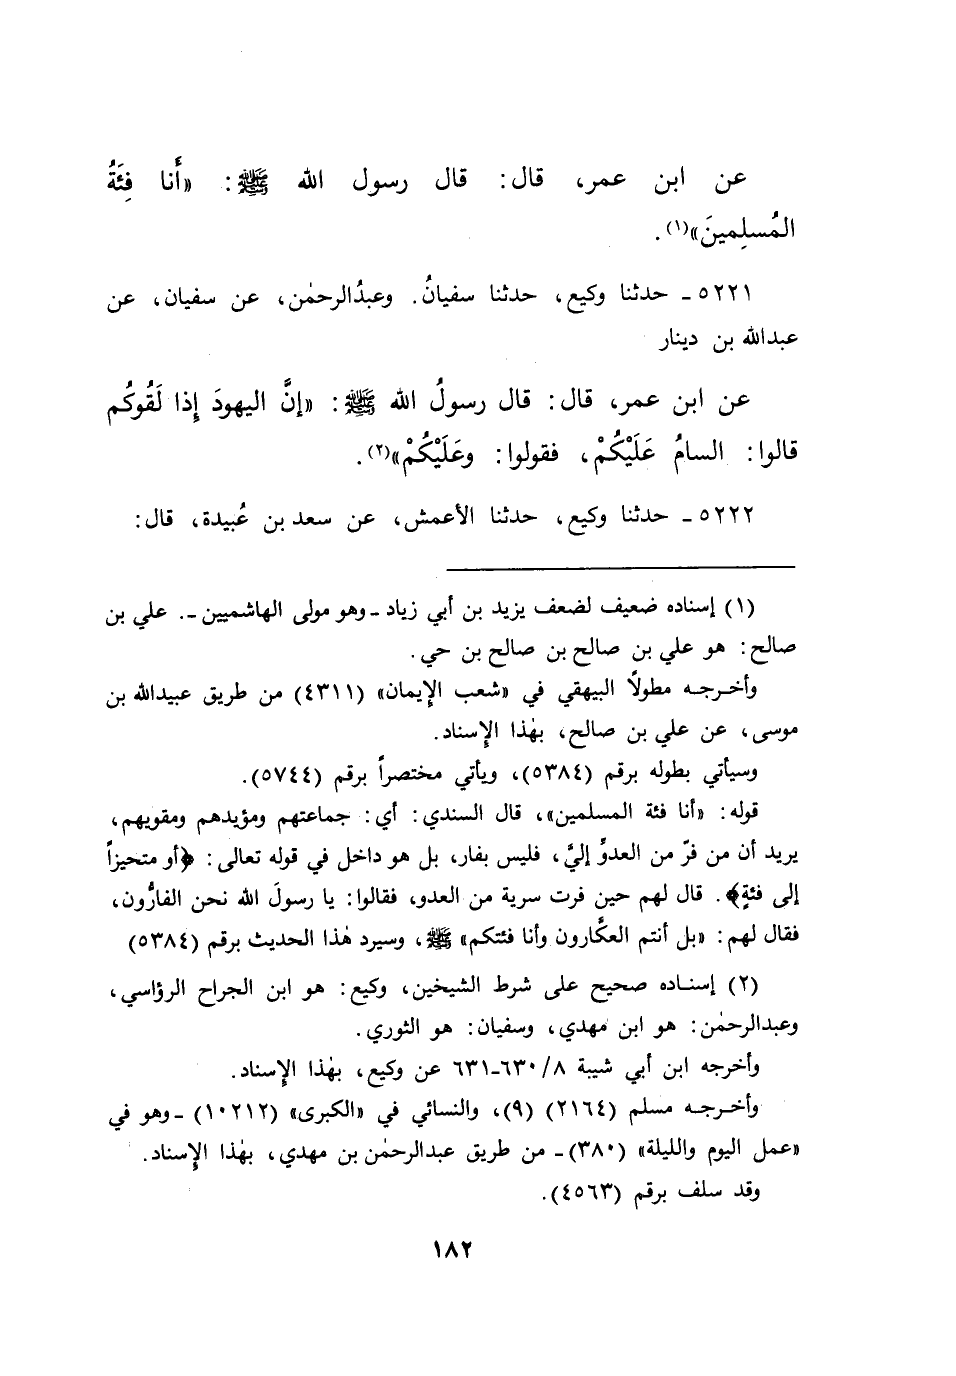 عن ابن عمر، قال: قال رسول الله ﷺ: «أَنا فِئَةُ
المُسلِمينَ»(١).
٥٢٢١ - حدثنا وكيع، حدثنا سفيانُ. وعبدُالرحمٰن، عن سفيان، عن
عبدالله بن دينار
عن ابن عمر، قال: قال رسولُ الله ﷺ: «إنَّ اليهودَ إِذا لَقُوكُم
قالوا: السامُ عَلَيْكُمْ، فقولوا: وعَلَيْكُمْ»(٢).
٥٢٢٢ - حدثنا وكيع، حدثنا الأعمش، عن سعد بن عُبيدة، قال:
(١) إسناده ضعيف لضعف يزيد بن أبي زياد - وهو مولى الهاشميين -. علي بن
صالح: هو علي بن صالح بن صالح بن حي.
وأخرجه مطولاً البيهقي في «شعب الإيمان» (٤٣١١) من طريق عبيدالله بن
موسى، عن علي بن صالح، بهٰذا الإسناد.
وسيأتي بطوله برقم (٥٣٨٤)، ويأتي مختصراً برقم (٥٧٤٤).
قوله: «أنا فئة المسلمين»، قال السندي: أي: جماعتهم ومؤيدهم ومقويهم،
يريد أن من فرّ من العدوِّ إليَّ، فليس بفار، بل هو داخل في قوله تعالى: ﴿أو متحيزاً
إلى فئةٍ﴾. قال لهم حين فرت سرية من العدو، فقالوا: يا رسولَ الله نحن الفارُّون،
فقال لهم: «بل أنتم العكَّارون وأنا فئتكم» ﷺ، وسيرد هٰذا الحديث برقم (٥٣٨٤)
(٢) إسناده صحيح على شرط الشيخين، وكيع: هو ابن الجراح الرؤاسي،
وعبدالرحمٰن: هو ابن مهدي، وسفيان: هو الثوري.
وأخرجه ابن أبي شيبة ٨/ ٦٣٠-٦٣١ عن وكيع، بهٰذا الإسناد.
وأخرجه مسلم (٢١٦٤) (٩)، والنسائي في «الكبرى» (١٠٢١٢) - وهو في
«عمل اليوم والليلة» (٣٨٠) - من طريق عبدالرحمٰن بن مهدي، بهٰذا الإسناد.
وقد سلف برقم (٤٥٦٣).
١٨٢